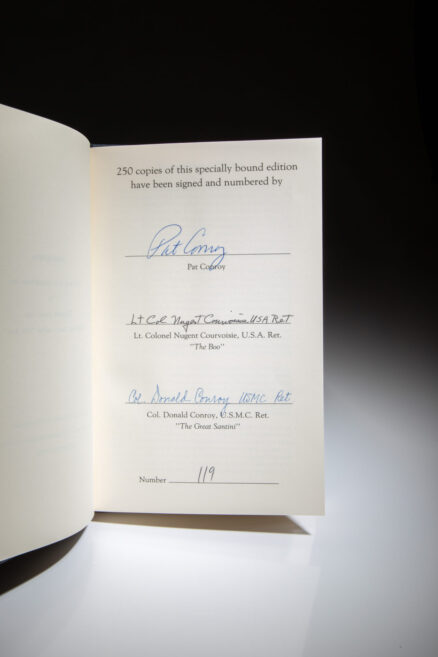 250 copies of this specially bound edition
have been signed and numbered by
Pat Conroy
Pat Conroy
Lt Col Nugent Courvoisie USA Ret
Lt. Colonel Nugent Courvoisie, U.S.A. Ret.
"The Boo"
Col. Donald Conroy USMC Ret
Col. Donald Conroy, U.S.M.C. Ret.
"The Great Santini"
Number 119